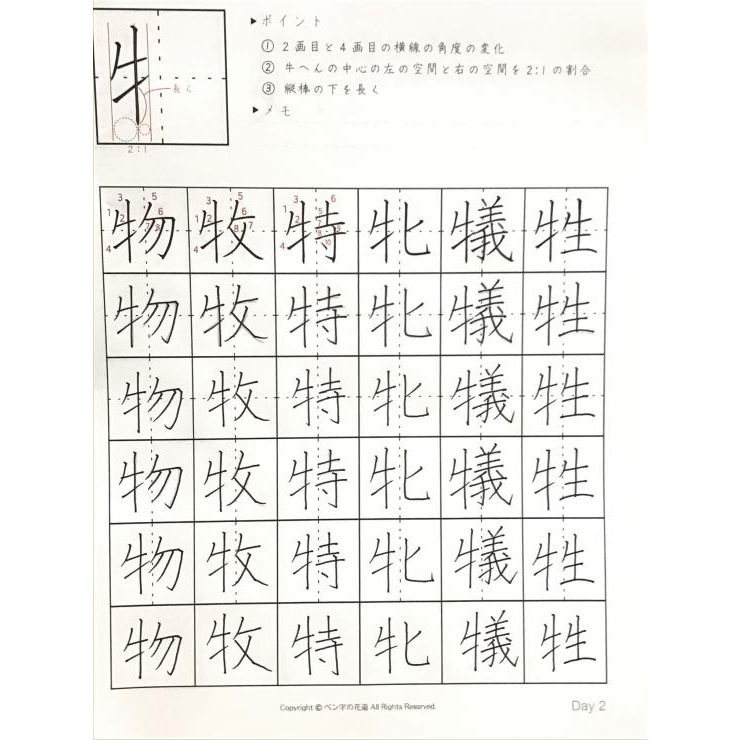 ▶ポイント
① 2画目と4画目の横線の角度の変化
② 牛へんの中心の左の空間と右の空間を2:1の割合
③ 縦棒の下を長く
▶メモ
牜
長く
2:1
物 牧 特 牝 犠 牲
物 牧 特 牝 犠 牲
物 牧 特 牝 犠 牲
物 牧 特 牝 犠 牲
物 牧 特 牝 犠 牲
物 牧 特 牝 犠 牲
Copyright © ペン字の花道 All Rights Reserved.
Day 2